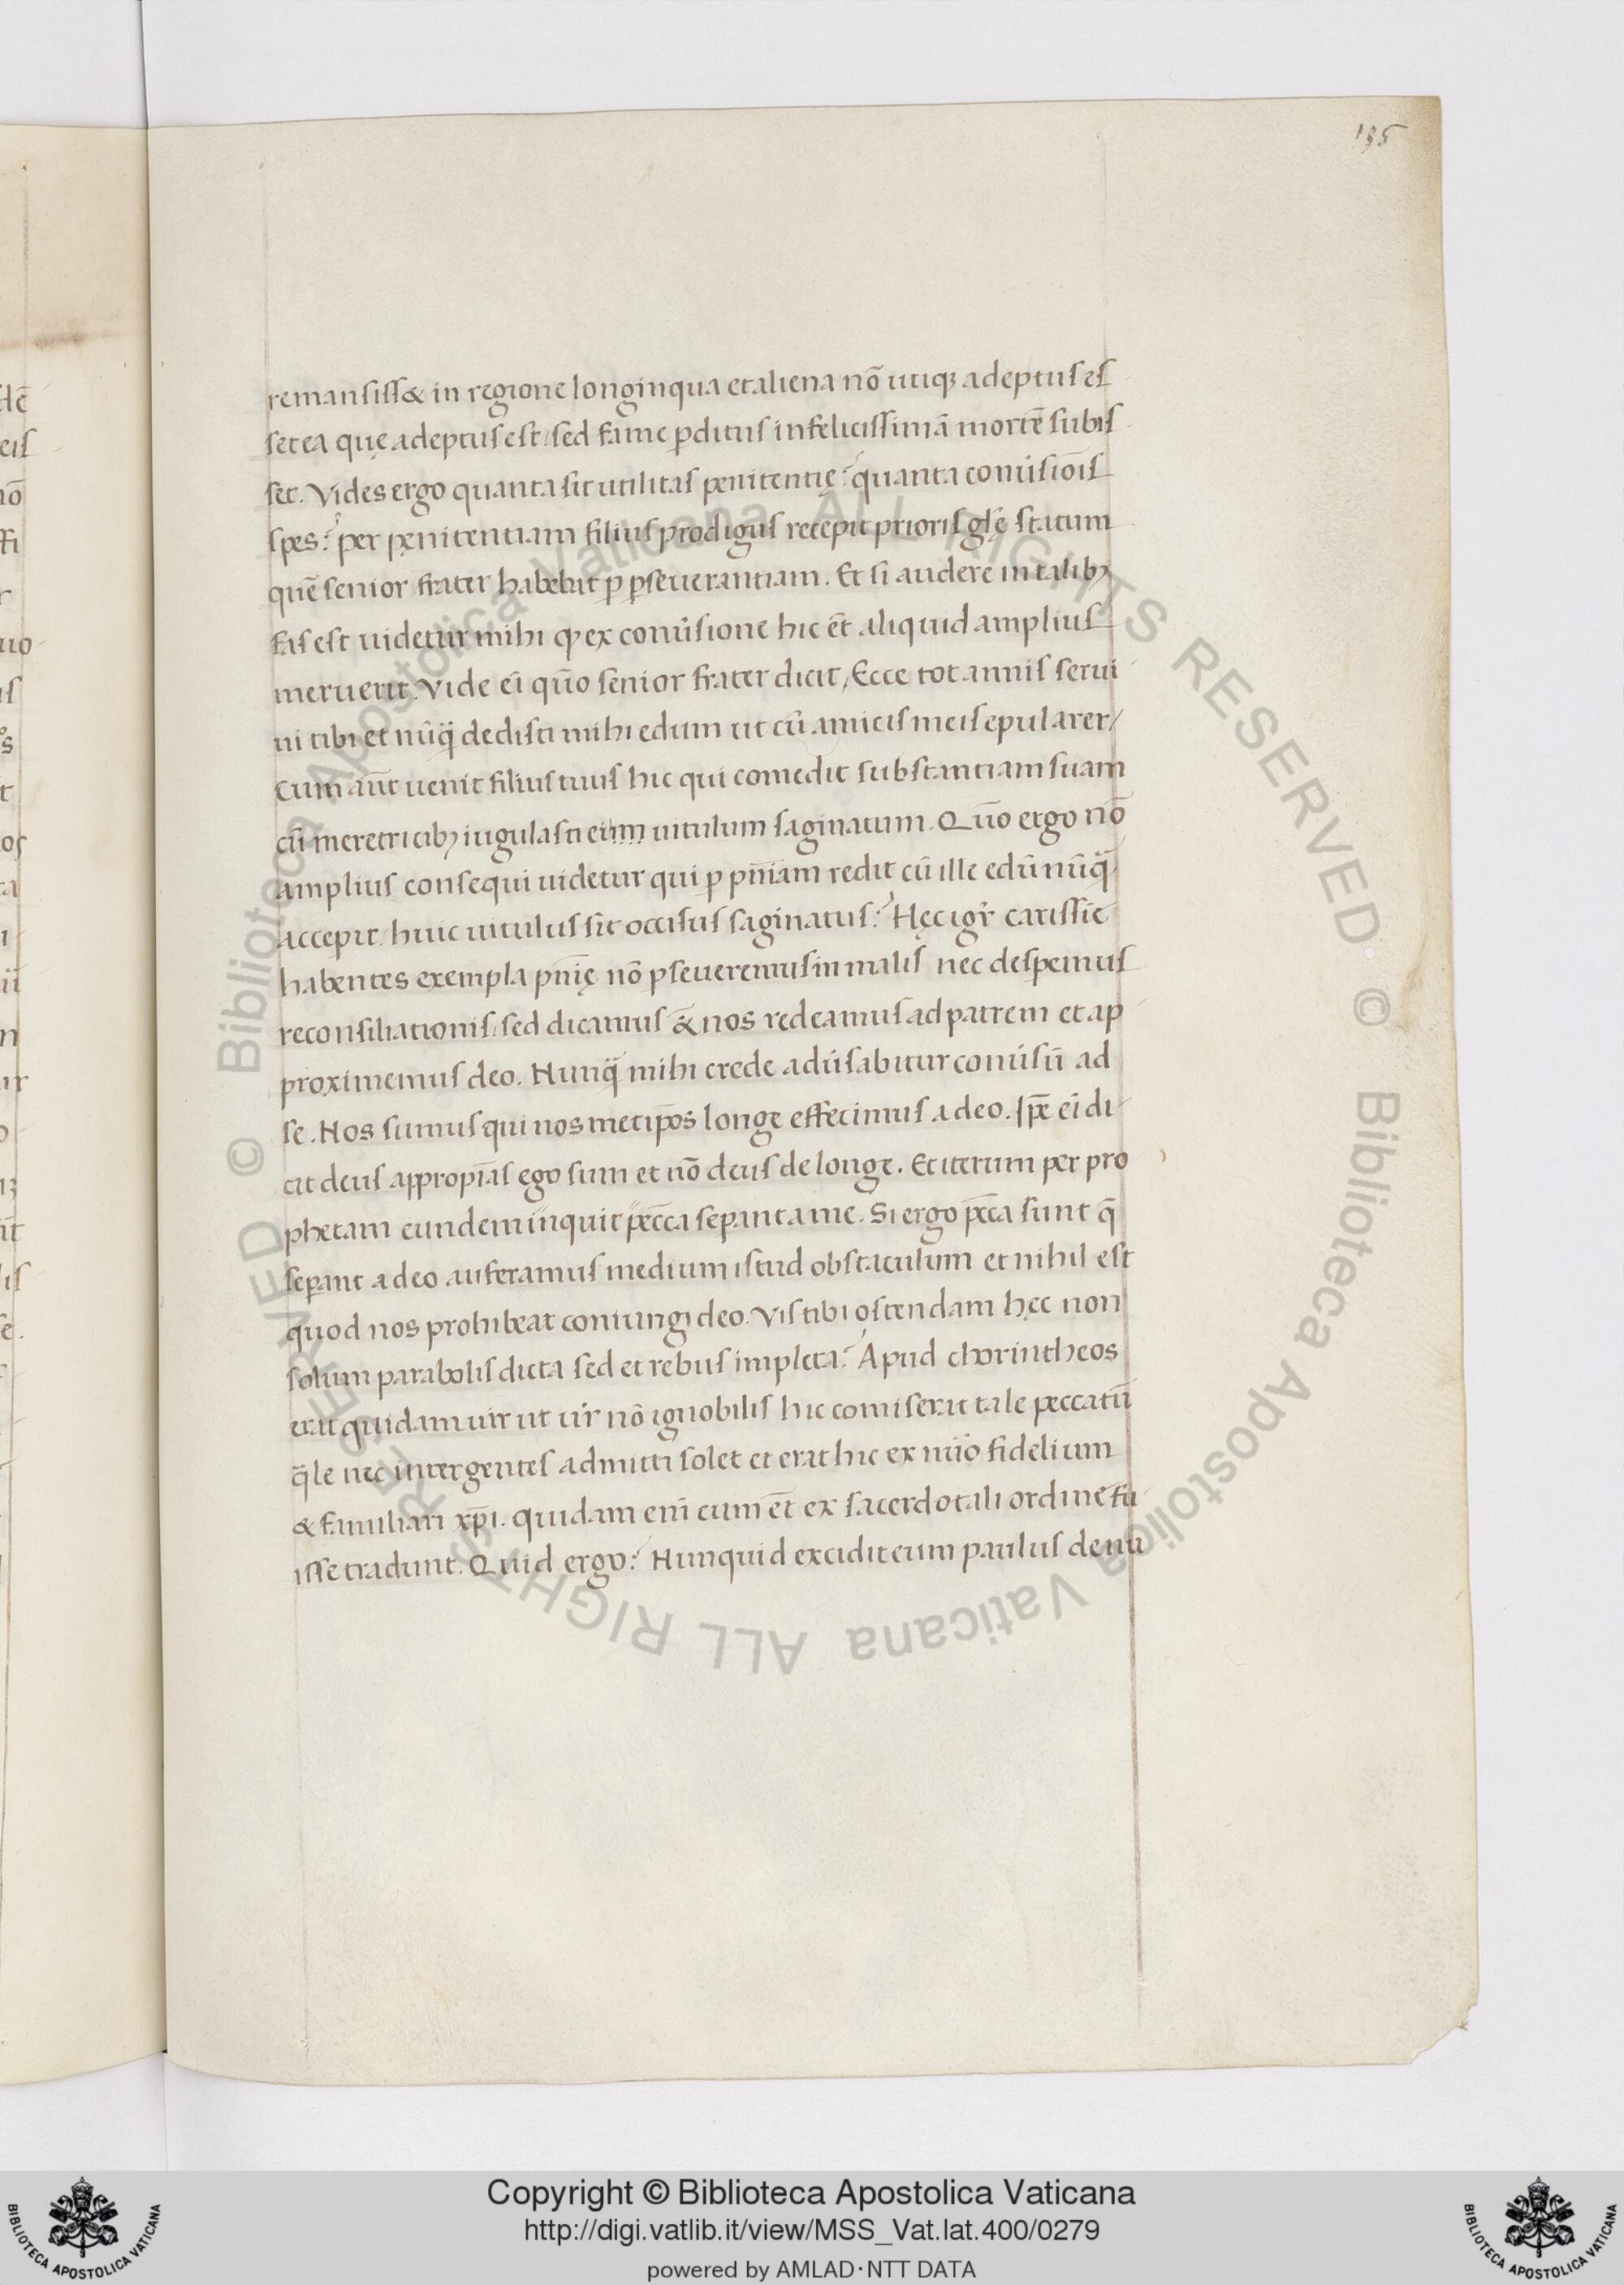 135
remansiss& in regione longinqua et aliena nō utiqꝫ adeptus es
set ea quę adeptus est sed fame ꝑditus infelicissimā mortē subis
set. Vides ergo quanta sit utilitas penitentię? quanta conu̓sionis
spes? per pęnitentiam filius prodigus recepit prioris gl̄ę statum
quē senior frater habebat ꝑ ꝑseuerantiam. Et si audere in talibꝫ
fas est uidetur mihi ꝙ ex conu̓sione hic ēt aliquid amplius
meruerit. Vide eī quō senior frater dicit, Ecce tot annis serui
ui tibi et nūq̄ dedisti mihi edum ut cū amicis meis epularer/
Cum aūt uenit filius tuus hic qui comedit substantiam suam
cū meretricibꝫ iugulasti eum uitulum saginatum. Quō ergo nō
amplius consequi uidetur qui ꝑ pn̄iam redit cū ille edū nūq̄
accepit huic uitulus sit occisus saginatus? Hęc igr̄ carissīe
habentes exempla pn̄ię nō ꝑseueremus in malis nec despemus
reconsiliationis sed dicamus & nos redeamus ad patrem et ap
proximemus deo. Nunq̄ mihi crede adu̓sabitur conu̓sū ad
se. Nos sumus qui nosmetip̄os longe effecimus a deo. Ip̄e eī di
cit deus appropīas ego sum et nō deus de longe. Et iterum per pro
phetam eundem inquit pec̄ca seꝑant a me. Si ergo pec̄ca sunt q̄
seꝑant a deo auferamus medium istud obstaculum et nihil est
quod nos prohibeat coniungi deo. Vis tibi ostendam hęc non
solum parabolis dicta sed et rebus impleta? Apud chorintheos
erat quidam uir ut ur̄ nō ignobilis hic comiserat tale peccatū
q̄le nec inter gentes admitti solet et erat hic ex nūo fidelium
& familiari xp̄i. quidam enī eum ēt ex sacerdotali ordine fu
isse tradunt. Quid ergo? Nunquid excidit eum paulus de nu
© Biblioteca Apostolica Vaticana ALL RIGHTS RESERVED © Biblioteca Apostolica Vaticana ALL RIGHTS RESERVED
Copyright © Biblioteca Apostolica Vaticana
http://digi.vatlib.it/view/MSS_Vat.lat.400/0279
powered by AMLAD·NTT DATA
BIBLIOTECA APOSTOLICA VATICANA
BIBLIOTECA APOSTOLICA VATICANA